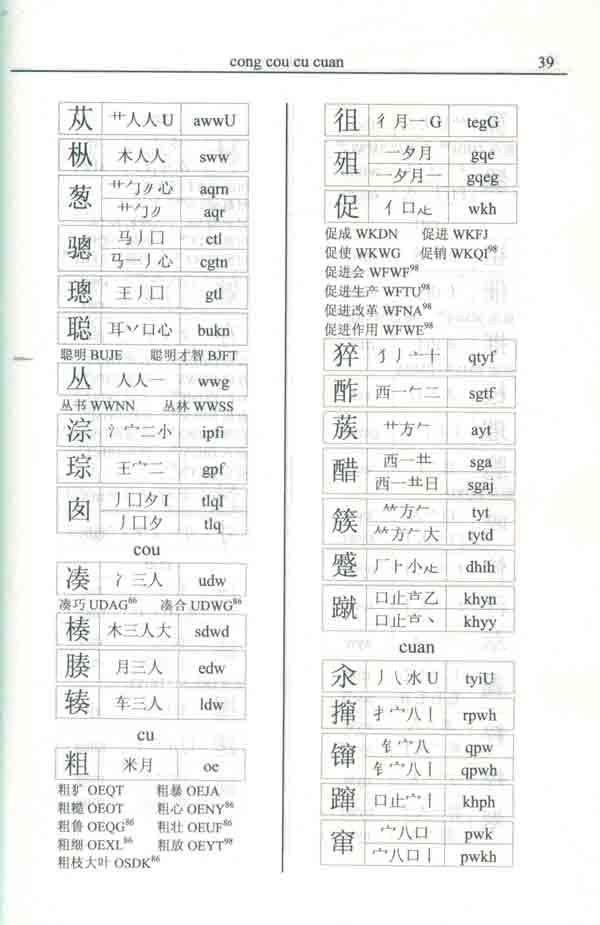 cong cou cu cuan 39
苁 艹人人U awwU
枞 木人人 sww
葱 艹勹〃心 aqrn
艹勹〃 aqr
骢 马丿囗 ctl
马一丿心 cgtn
璁 王丿囗 gtl
聪 耳丷口心 bukn
聪明 BUJE 聪明才智 BJFT
丛 人人一 wwg
丛书 WWNN 丛林 WWSS
淙 氵宀二小 ipfi
琮 王宀二 gpf
囱 丿囗夕I tlqI
丿囗夕 tlq
cou
凑 冫三人 udw
凑巧 UDAG86 凑合 UDWG86
楱 木三人大 sdwd
腠 月三人 edw
辏 车三人 ldw
cu
粗 米月 oe
粗犷 OEQT 粗暴 OEJA
粗糙 OEOT 粗心 OENY86
粗鲁 OEQG86 粗壮 OEUF86
粗细 OEXL86 粗放 OEYT98
粗枝大叶 OSDK86
徂 彳月一G tegG
殂 一夕月 gqe
一夕月一 gqeg
促 亻口龰 wkh
促成 WKDN 促进 WKFJ
促使 WKWG 促销 WKQI98
促进会 WFWF98
促进生产 WFTU98
促进改革 WFNA98
促进作用 WFWE98
猝 犭丿亠十 qtyf
酢 西一𠂉二 sgtf
蔟 艹方𠂉 ayt
醋 西一龷 sga
西一龷日 sgaj
簇 𥫗方𠂉 tyt
𥫗方𠂉大 tytd
蹙 厂⺊小龰 dhih
蹴 口止𠅃乙 khyn
口止𠅃丶 khyy
cuan
汆 丿乀水U tyiU
撺 扌宀八丨 rpwh
镩 钅宀八 qpw
钅宀八丨 qpwh
蹿 口止宀丨 khph
窜 宀八口 pwk
宀八口丨 pwkh